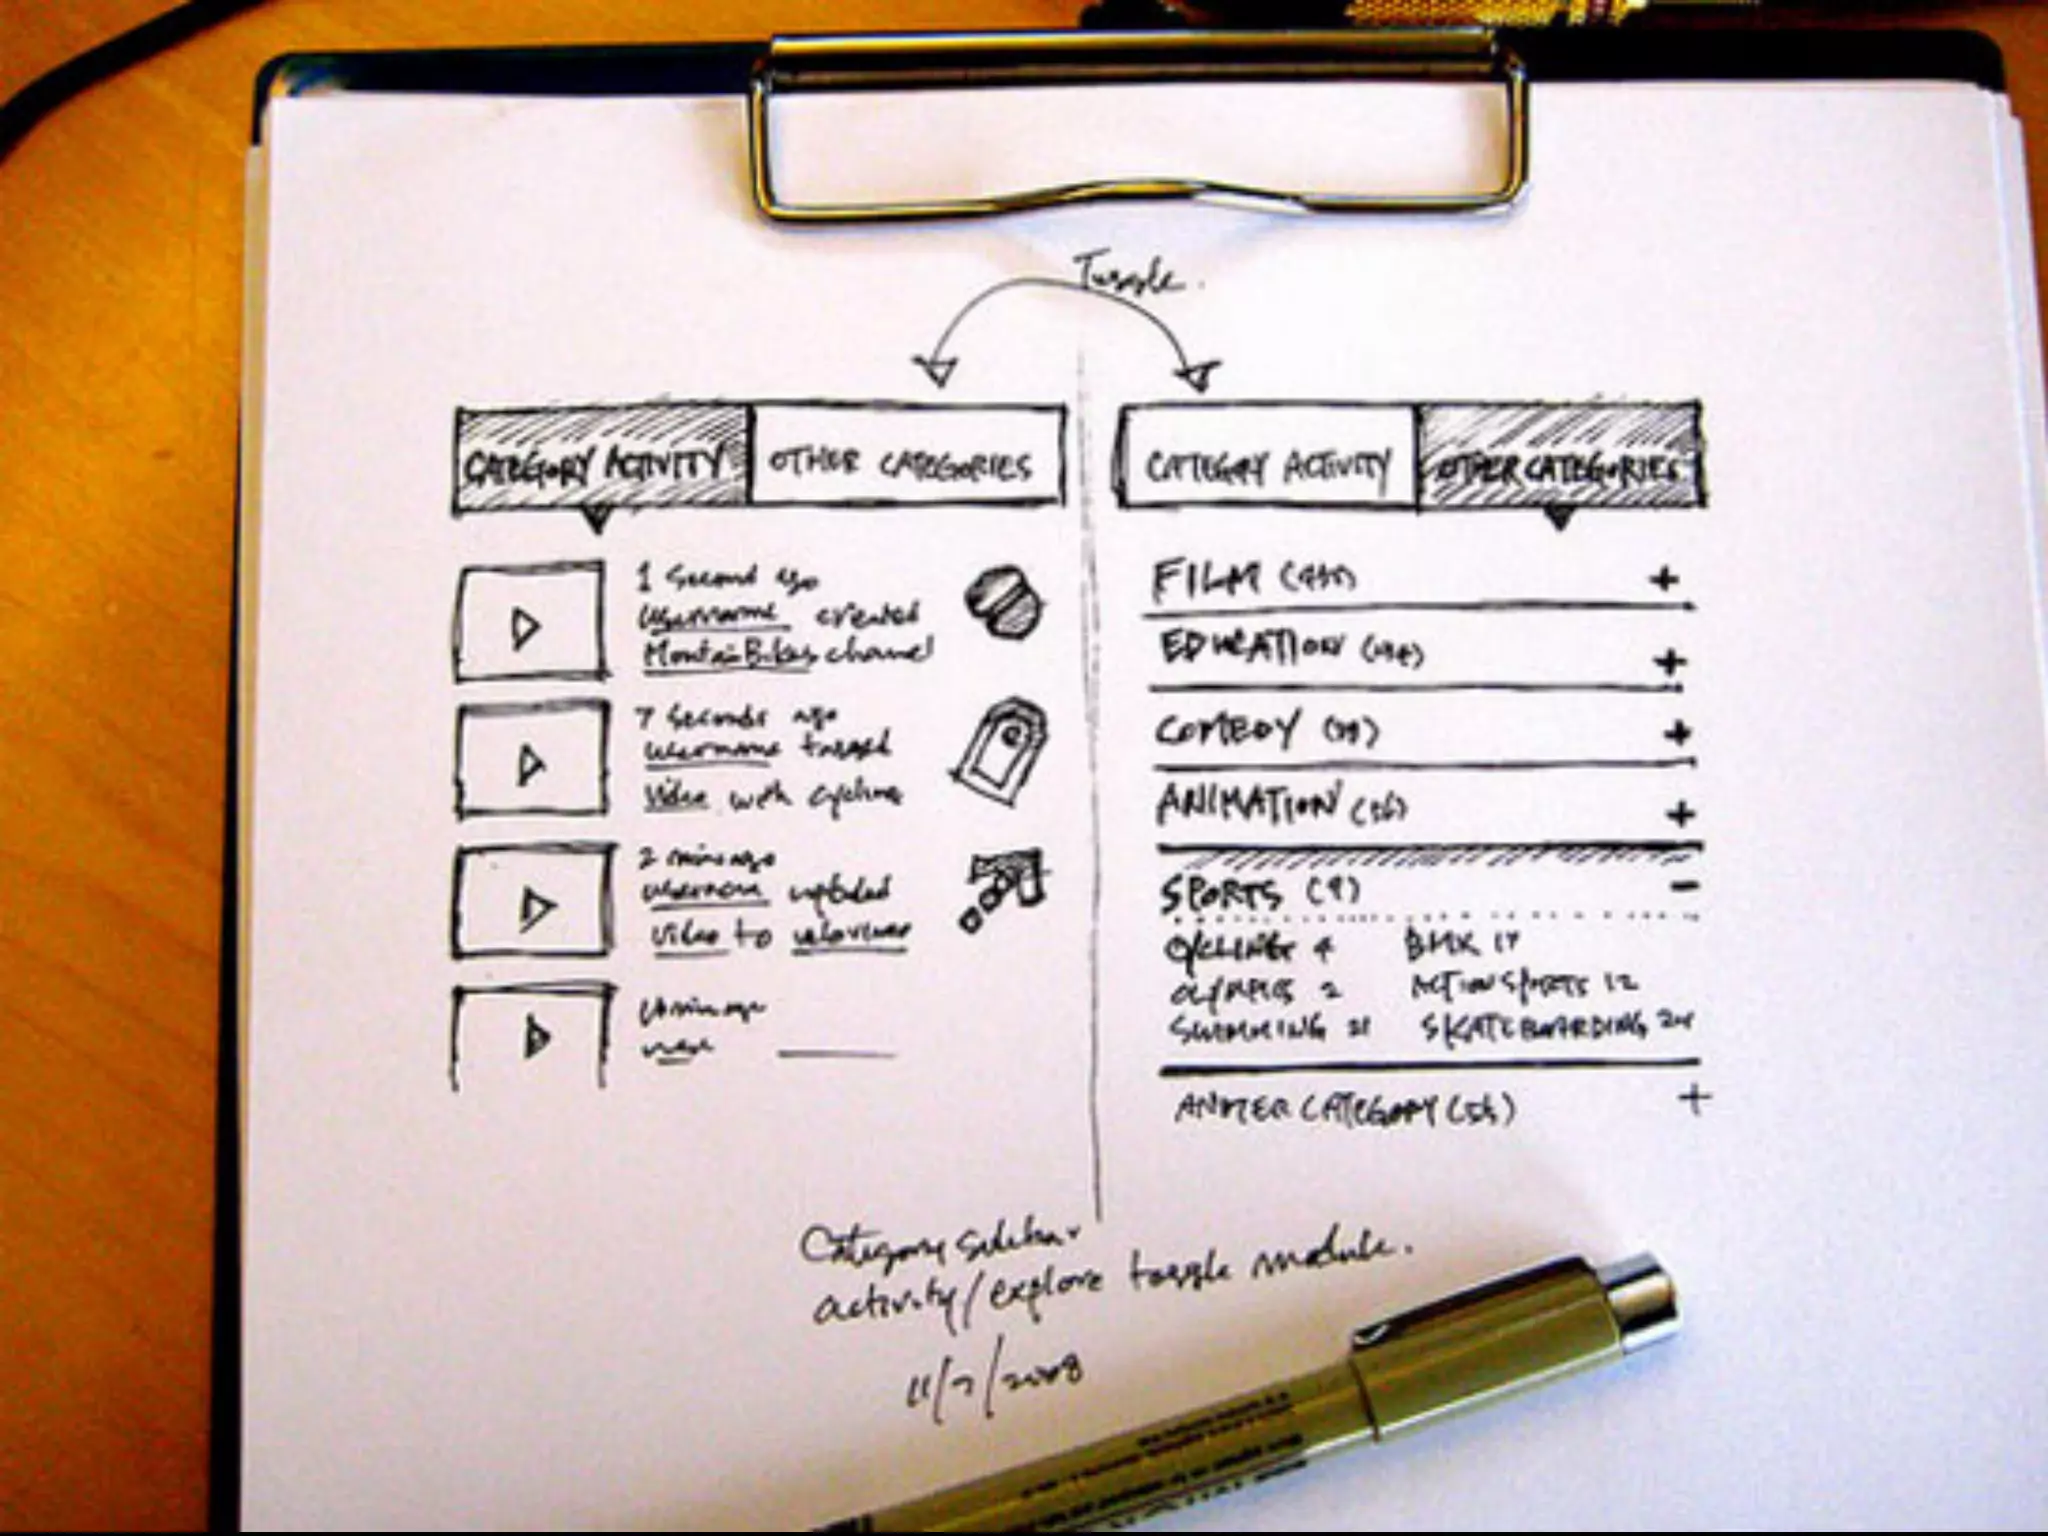 Toggle.
CATEGORY ACTIVITY
OTHER CATEGORIES
1 Second ago
Username created
MontainBikes channel
7 Seconds ago
username tagged
Video with cycling
2 mins ago
username uploaded
video to
CATEGORY ACTIVITY
OTHER CATEGORIES
FILM +
EDUCATION +
COMEDY +
ANIMATION (36) +
SPORTS (9) -
CYCLING 4 BMX 17
OLYMPICS 2 ACTION SPORTS 12
SWIMMING 21 SKATEBOARDING 24
ANOTHER CATEGORY +
Category sidebar
activity/explore toggle module.
11/7/2008